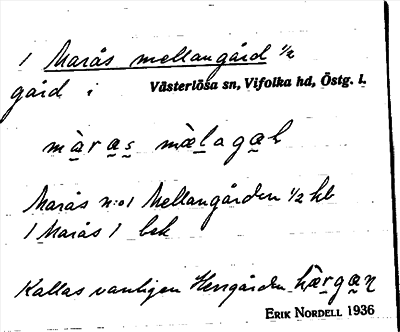 1 Marås mellangård ½
gård i Västerlösa sn, Vifolka hd, Östg. l.
màra̲s̲ mæ̀l̲aga̲h
Marås n:o 1 Mellangården ½ hb
1 Marås 1 bek
Kallas vanligen Herrgården hæ̀r̲ga̲ɳ
ERIK NORDELL 1936